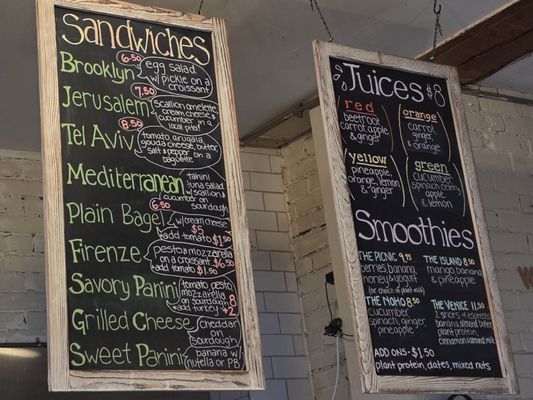 Sandwiches
Brooklyn 6.50 egg salad
w/ pickle on a
croissant
Jerusalem 7.50 scallion omelette
cream cheese &
cucumber in
a pita
Tel Aviv 8.50 tomato, arugula
gouda cheese
& butter on a
baguette
Mediterranean tahini
tuna salad
& cucumber
on sourdough
Plain Bagel 6.50 w/ cream cheese
$5
+ add tomato $1.50
Firenze pesto & mozzarella
on a croissant $6.50
add tomato $1.50
Savory Panini tomato pesto
& mozzarella 8
add turkey +2
Grilled Cheese cheddar
on sourdough
Sweet Panini banana w/
nutella or PB
Juices $8
red
beetroot
carrot apple
& ginger
orange
carrot
apple &
ginger
yellow
pineapple,
orange apple
& ginger
green
cucumber
spinach
celery apple
& lemon
Smoothies
THE PICNIC 9.25
berries banana
honey & yogurt
(or choice of milk)
THE ISLAND 8.50
mango banana
& pineapple
THE NOMO 8.50
cucumber,
spinach, ginger
& pineapple
THE VENICE 11.50
2 shots of espresso
banana almond butter
protein powder
cinnamon w/ almond milk
ADD ONS - $1.50
plant protein, dates, mixed nuts